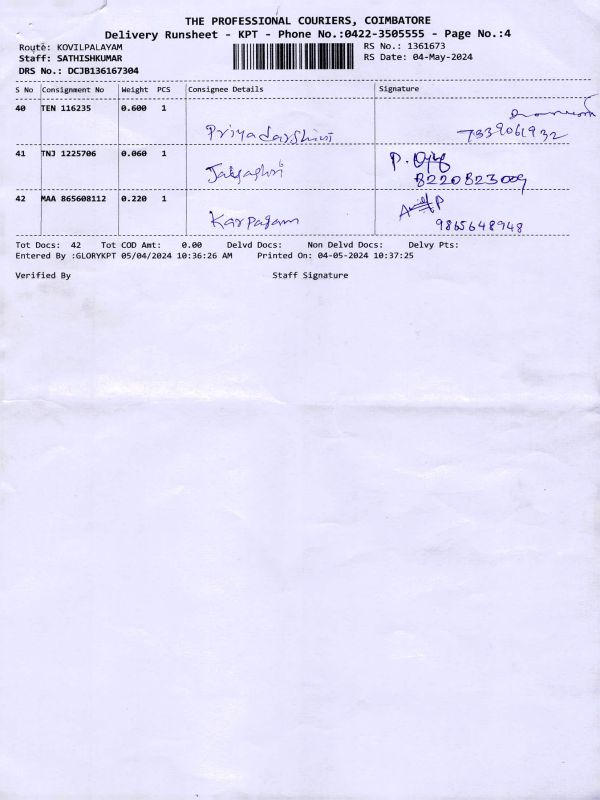 THE PROFESSIONAL COURIERS, COIMBATORE
Delivery Runsheet - KPT - Phone No.:0422-3505555 - Page No.:4
Route: KOVILPALAYAM
RS No.: 1361673
Staff: SATHISHKUMAR
RS Date: 04-May-2024
DRS No.: DCJB136167304
S No Consignment No Weight PCS Consignee Details Signature
40 TEN 116235 0.600 1
Priyadarshini 7339061932
41 TNJ 1225706 0.060 1 P.
8220823009
42 MAA 865608112 0.220 1
Karpagam 9865648948
Tot Docs: 42 Tot COD Amt: 0.00 Delvd Docs: Non Delvd Docs: Delvy Pts:
Entered By :GLORYKPT 05/04/2024 10:36:26 AM Printed On: 04-05-2024 10:37:25
Verified By Staff Signature